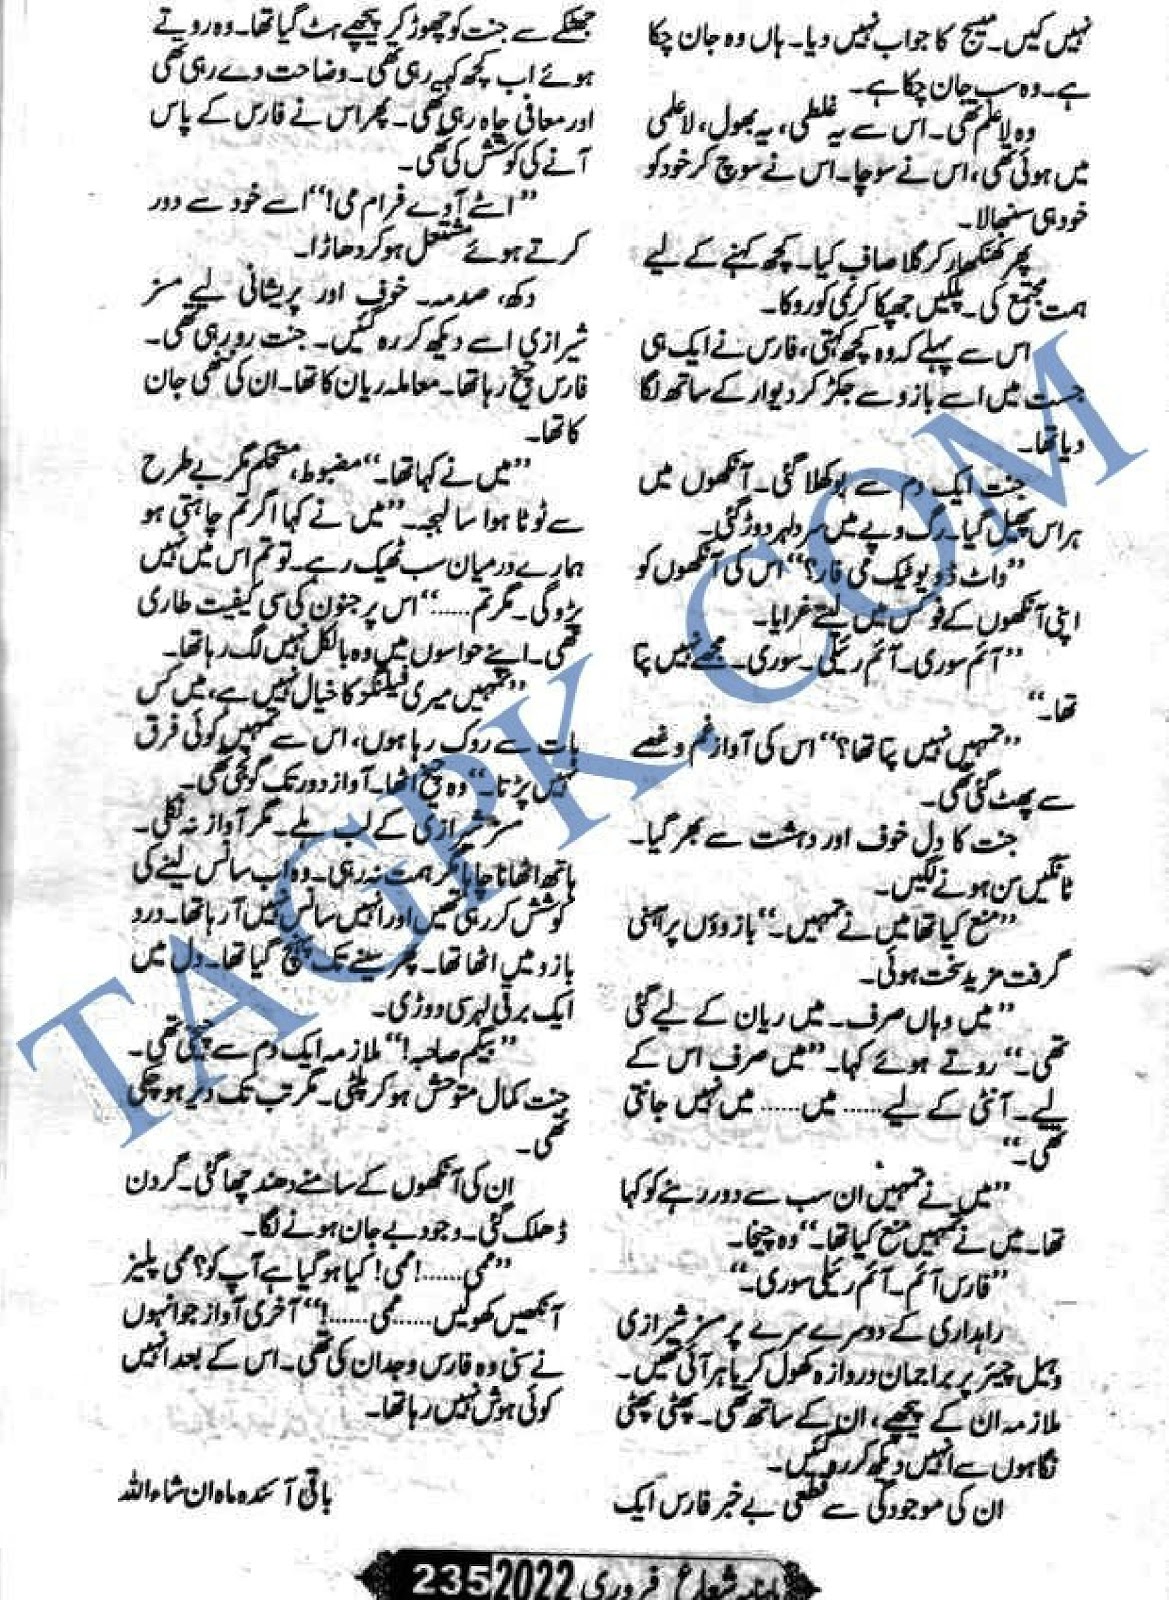 نہیں کیں۔ میسج کا جواب نہیں دیا۔ ہاں وہ جان چکا
ہے۔ وہ سب جان چکا ہے۔
وہ لاعلم تھی۔ اس سے یہ غلطی، یہ بھول، لاعلمی
میں ہوئی تھی، اس نے سوچا۔ اس نے سوچ کر خود کو
خود ہی سنبھالا۔
پھر کھنکھار کر گلا صاف کیا۔ کچھ کہنے کے لیے
ہمت مجتمع کی۔ پلکیں جھپکا کر نمی کو روکا۔
اس سے پہلے کہ وہ کچھ کہتی، فارس نے ایک ہی
جست میں اسے بازو سے جکڑ کر دیوار کے ساتھ لگا
دیا تھا۔
جنت ایک دم سے بوکھلا گئی۔ آنکھوں میں
ہراس پھیل گیا۔ رگ و پے میں سرد لہر دوڑ گئی۔
”واٹ ڈو یو ٹیک می فار؟“ اس کی آنکھوں کو
اپنی آنکھوں کے فوکس میں لیتے غرایا۔
”آئم سوری۔ آئم رئیلی۔ سوری۔ مجھے نہیں پتا
تھا۔“
”تمہیں نہیں پتا تھا؟“ اس کی آواز غم و غصے
سے پھٹ گئی تھی۔
جنت کا دل خوف اور دہشت سے بھر گیا۔
ٹانگیں سن ہونے لگیں۔
”منع کیا تھا میں نے تمہیں۔“ بازوؤں پر آہنی
گرفت مزید سخت ہوئی۔
”میں وہاں صرف۔ میں ریان کے لیے گئی
تھی۔“ روتے ہوئے کہا۔ ”میں صرف اس کے
لیے۔ آنٹی کے لیے...... میں...... میں نہیں جانتی
تھی۔“
”میں نے تمہیں ان سب سے دور رہنے کو کہا
تھا۔ میں نے تمہیں منع کیا تھا۔“ وہ چیخا۔
”فارس آئم۔ آئم رئیلی سوری۔“
راہداری کے دوسرے سرے پر مسز شیرازی
وہیل چیئر پر براجمان دروازہ کھول کر باہر آئی تھیں۔
ملازمہ ان کے پیچھے، ان کے ساتھ تھی۔ پھٹی پھٹی
نگاہوں سے انہیں دیکھ کر رہ گئیں۔
ان کی موجودگی سے قطعی بے خبر فارس ایک
جھٹکے سے جنت کو چھوڑ کر پیچھے ہٹ گیا تھا۔ وہ روتے
ہوئے اب کچھ کہہ رہی تھی۔ وضاحت دے رہی تھی
اور معافی چاہ رہی تھی۔ پھر اس نے فارس کے پاس
آنے کی کوشش کی تھی۔
”اسٹے آوے فرام می!“ اسے خود سے دور
کرتے ہوئے مشتعل ہو کر دھاڑا۔
دکھ، صدمہ۔ خوف اور پریشانی لیے مسز
شیرازی اسے دیکھ کر رہ گئیں۔ جنت رو رہی تھی۔
فارس چیخ رہا تھا۔ معاملہ ریان کا تھا۔ ان کی ننھی جان
کا تھا۔
”میں نے کہا تھا۔“ مضبوط، مستحکم مگر بے طرح
سے ٹوٹا ہوا سا لہجہ۔ ”میں نے کہا اگر تم چاہتی ہو
ہمارے درمیان سب ٹھیک رہے۔ تو تم اس میں نہیں
پڑو گی۔ مگر تم......“ اس پر جنون کی سی کیفیت طاری
تھی۔ اپنے حواسوں میں وہ بالکل نہیں لگ رہا تھا۔
”تمہیں میری فیلنگز کا خیال نہیں ہے، میں کس
بات سے روک رہا ہوں، اس سے تمہیں کوئی فرق
نہیں پڑتا۔“ وہ چیخ اٹھا۔ آواز دور تک گونجی تھی۔
مسز شیرازی کے لب ہلے۔ مگر آواز نہ نکلی۔
ہاتھ اٹھانا چاہا مگر ہمت نہ رہی۔ وہ اب سانس لینے کی
کوشش کر رہی تھیں اور انہیں سانس نہیں آ رہا تھا۔ درد
بازو میں اٹھا تھا۔ پھر سینے تک پہنچ گیا تھا۔ دل میں
ایک برقی لہر سی دوڑی۔
”بیگم صاحبہ!“ ملازمہ ایک دم سے چیخی تھی۔
جنت کمال متوحش ہو کر پلٹی۔ مگر تب تک دیر ہو چکی
تھی۔
ان کی آنکھوں کے سامنے دھند چھا گئی۔ گردن
ڈھلک گئی۔ وجود بے جان ہونے لگا۔
”ممی......! ممی! کیا ہو گیا ہے آپ کو؟ ممی پلیز
آنکھیں کھولیں...... ممی......!“ آخری آواز جو انہوں
نے سنی وہ فارس وجدان کی تھی۔ اس کے بعد انہیں
کوئی ہوش نہیں رہا تھا۔
باقی آئندہ ماہ ان شاء اللہ
ماہنامہ شعاع فروری 2022 235
TAGPK.COM